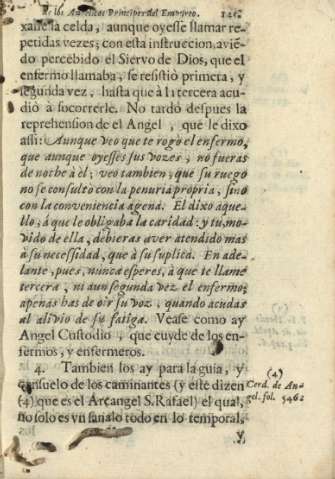 de los Angelicos Principes del Empyreo. 121
xasse la celda, aunque oyesse llamar re-
petidas vezes; con esta instruccion, avié-
do percebido el Siervo de Dios, que el
enfermo llamaba, se resistió primera, y
segunda vez, hasta que à la tercera acu-
dió à socorrerle. No tardó despues la
reprehension de el Angel, que le dixo
assi: Aunque veo que te rogò el enfermo,
que aunque oyesses sus vozes, no fueras
de noche à èl; veo tambien, que su ruego
no se consultò con la penuria propria, sino
con la conveniencia agena. El dixo aque-
llo, à que le obligaba la caridad: y tu, mo-
vido de ella, debieras aver atendido mas
à su necessidad, que à su suplica. En ade-
lante, pues, nunca esperes, à que te llame
tercera, ni aun segunda vez el enfermo;
apenas has de oir su voz, quando acudas
al alivio de su fatiga. Vease como ay
Angel Custodio, que cuyde de los en-
fermos, y enfermeros.
4. Tambien los ay para la guia, y
consuelo de los caminantes (y este dizen
(4) que es el Arcangel S. Rafael) el qual,
no solo es vn sanalo todo en lo temporal,
y
(4)
Cerd. de An-
gel. fol. 546.